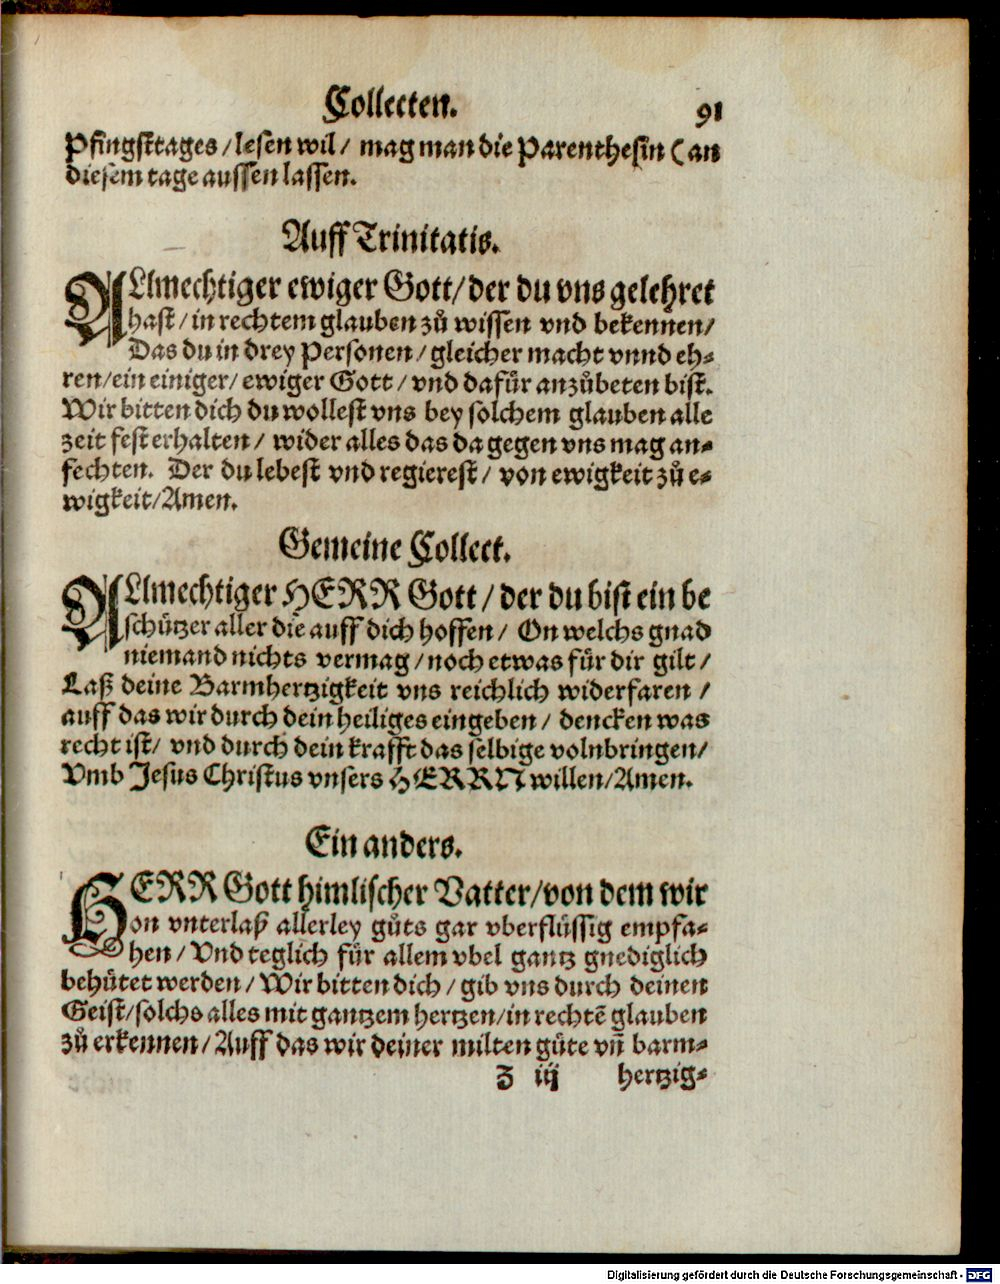 Collecten. 91
Pfingsttages / lesen wil / mag man die Parenthesin ( an
diesem tage aussen lassen.
Auff Trinitatis.
ALlmechtiger ewiger Gott / der du vns gelehret
hast / in rechtem glauben zů wissen vnd bekennen /
Das du in drey Personen / gleicher macht vnnd eh-
ren / ein einiger / ewiger Gott / vnd dafür anzůbeten bist.
Wir bitten dich du wollest vns bey solchem glauben alle
zeit fest erhalten / wider alles das da gegen vns mag an-
fechten. Der du lebest vnd regierest / von ewigkeit zů e-
wigkeit / Amen.
Gemeine Collect.
ALlmechtiger HERR Gott / der du bist ein be
schützer aller die auff dich hoffen / On welchs gnad
niemand nichts vermag / noch etwas für dir gilt /
Laß deine Barmhertzigkeit vns reichlich widerfaren /
auff das wir durch dein heiliges eingeben / dencken was
recht ist / vnd durch dein krafft das selbige volnbringen /
Vmb Jesus Christus vnsers HERRN willen / Amen.
Ein anders.
HERR Gott himlischer Vatter / von dem wir
on vnterlaß allerley gůts gar vberflüssig empfa-
hen / Vnd teglich für allem vbel gantz gnediglich
behütet werden / Wir bitten dich / gib vns durch deinen
Geist / solchs alles mit gantzem hertzen / in rechtē glauben
zů erkennen / Auff das wir deiner milten güte vn̄ barm-
Z iij hertzig-
Digitalisierung gefördert durch die Deutsche Forschungsgemeinschaft - DFG